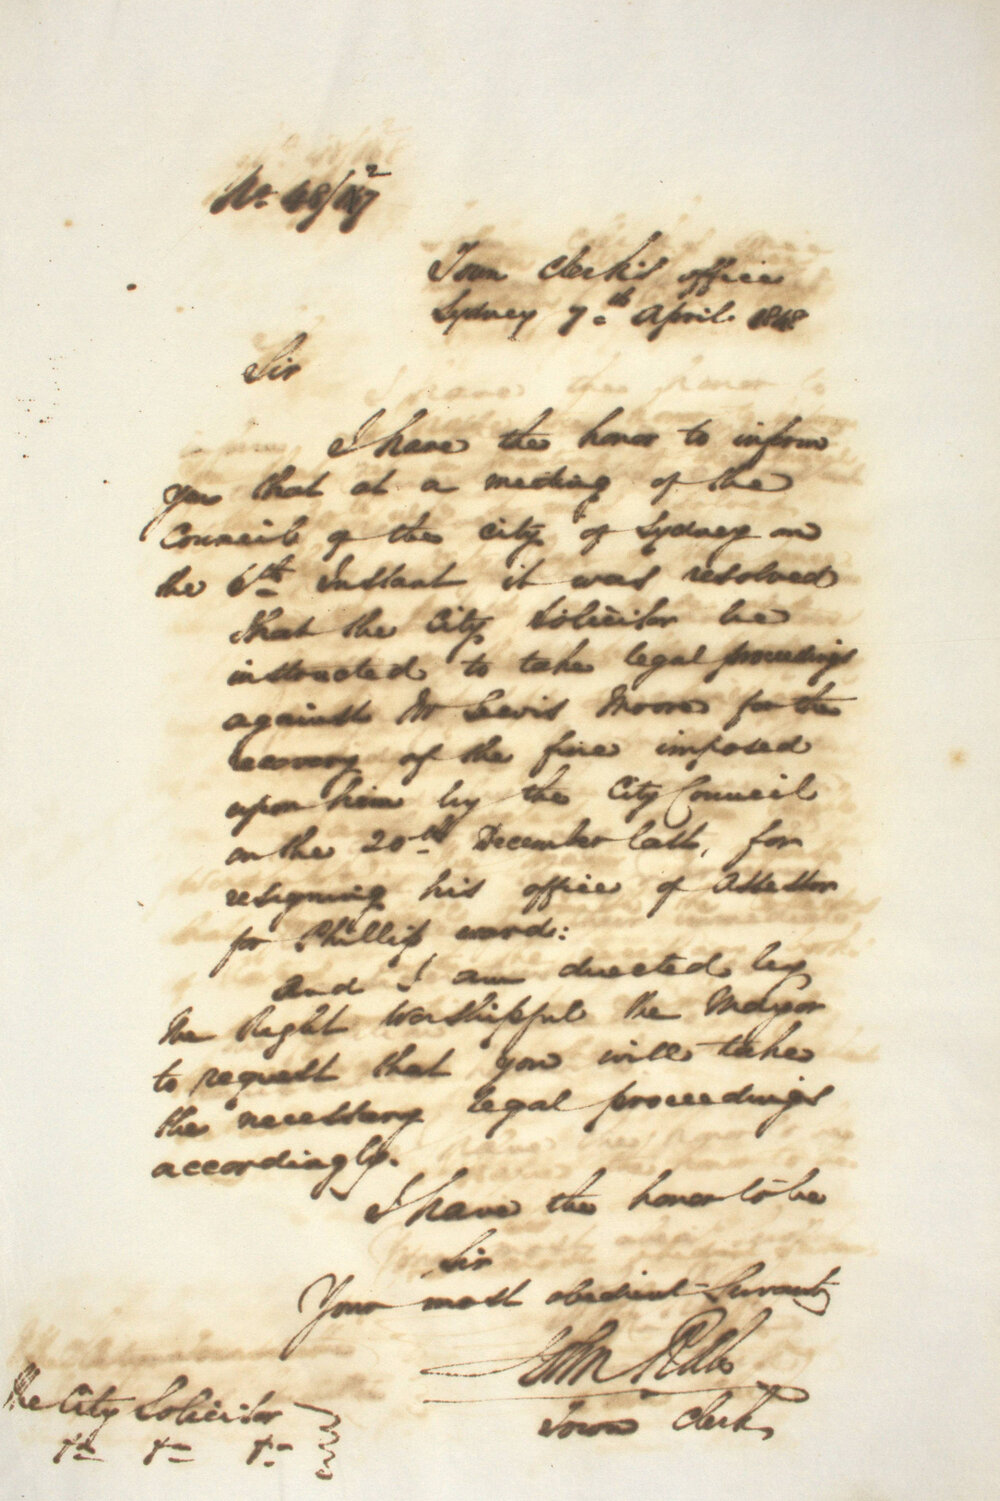 Town Clerk's office
Sydney 7th April 1848
Sir
I have the honor to inform
you that at a meeting of the
Council of the City of Sydney on
the 6th Instant it was resolved
that the City Solicitor be
instructed to take legal proceedings
against Mr Lewis Moore for the
recovery of the fine imposed
upon him by the City Council
on the 20th December last, for
resigning his office of Assessor
for Phillip ward:
And I am directed by
the Right Worshipful the Mayor
to request that you will take
the necessary legal proceedings
accordingly.
I have the honor to be
Sir
Your most obedient Servant
John
Town Clerk
The City Solicitor